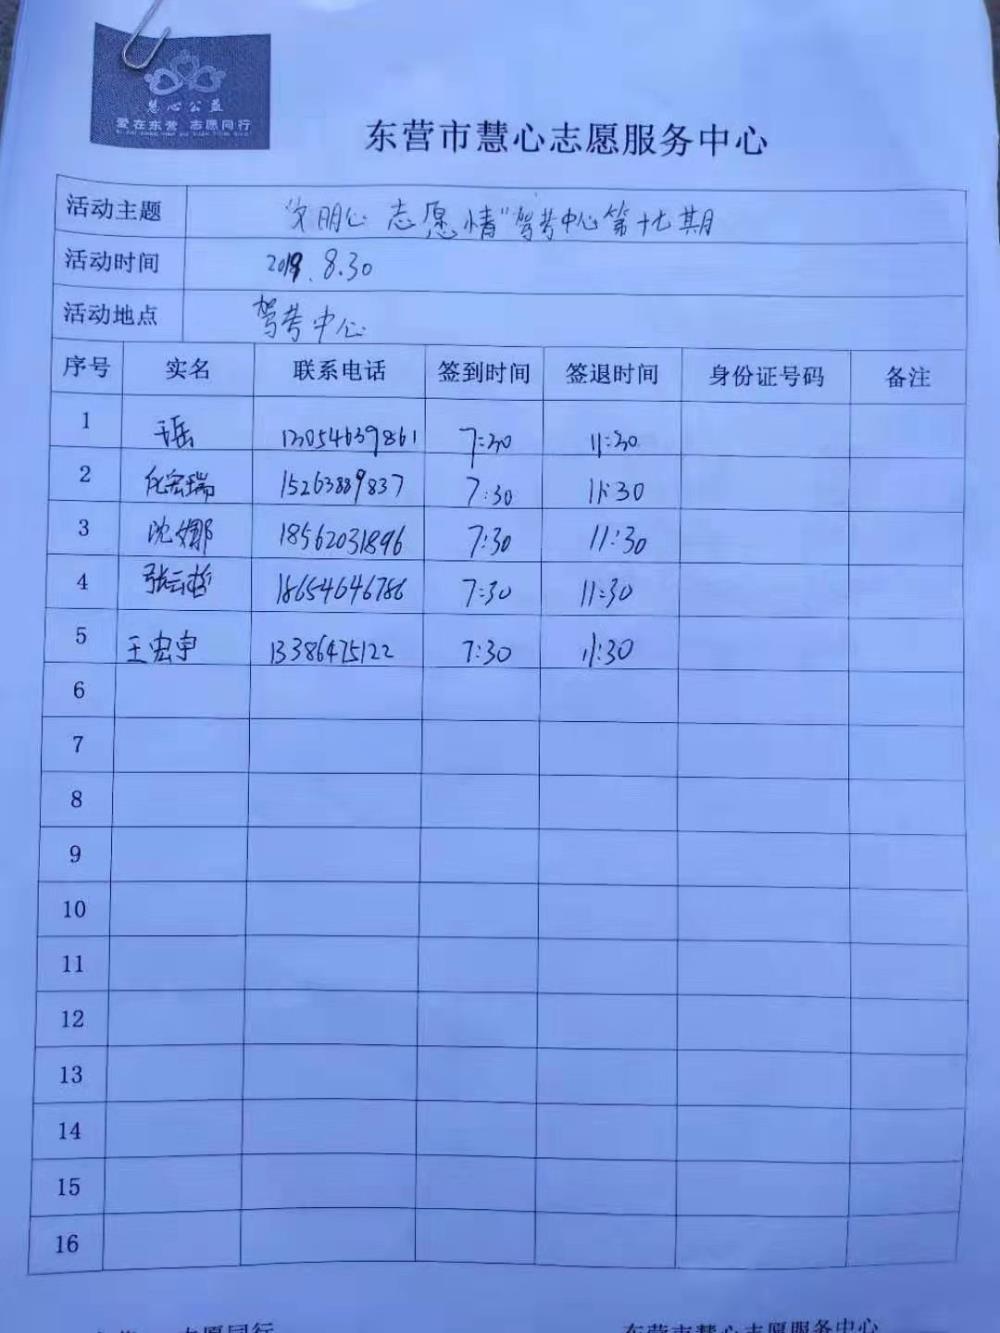 慧心公益
爱在东营 志愿同行
东营市慧心志愿服务中心
活动主题 "文明心 志愿情"驾考中心第十七期
活动时间 2019.8.30
活动地点 驾考中心
序号 实名 联系电话 签到时间 签退时间 身份证号码 备注
1 13054639861 7:30 11:30
2 任宏瑞 15263889837 7:30 11:30
3 沈娜 18562031896 7:30 11:30
4 张云哲 18654646786 7:30 11:30
5 王宏宇 13386475122 7:30 11:30
6
7
8
9
10
11
12
13
14
15
16
志愿同行 东营市慧心志愿服务中心